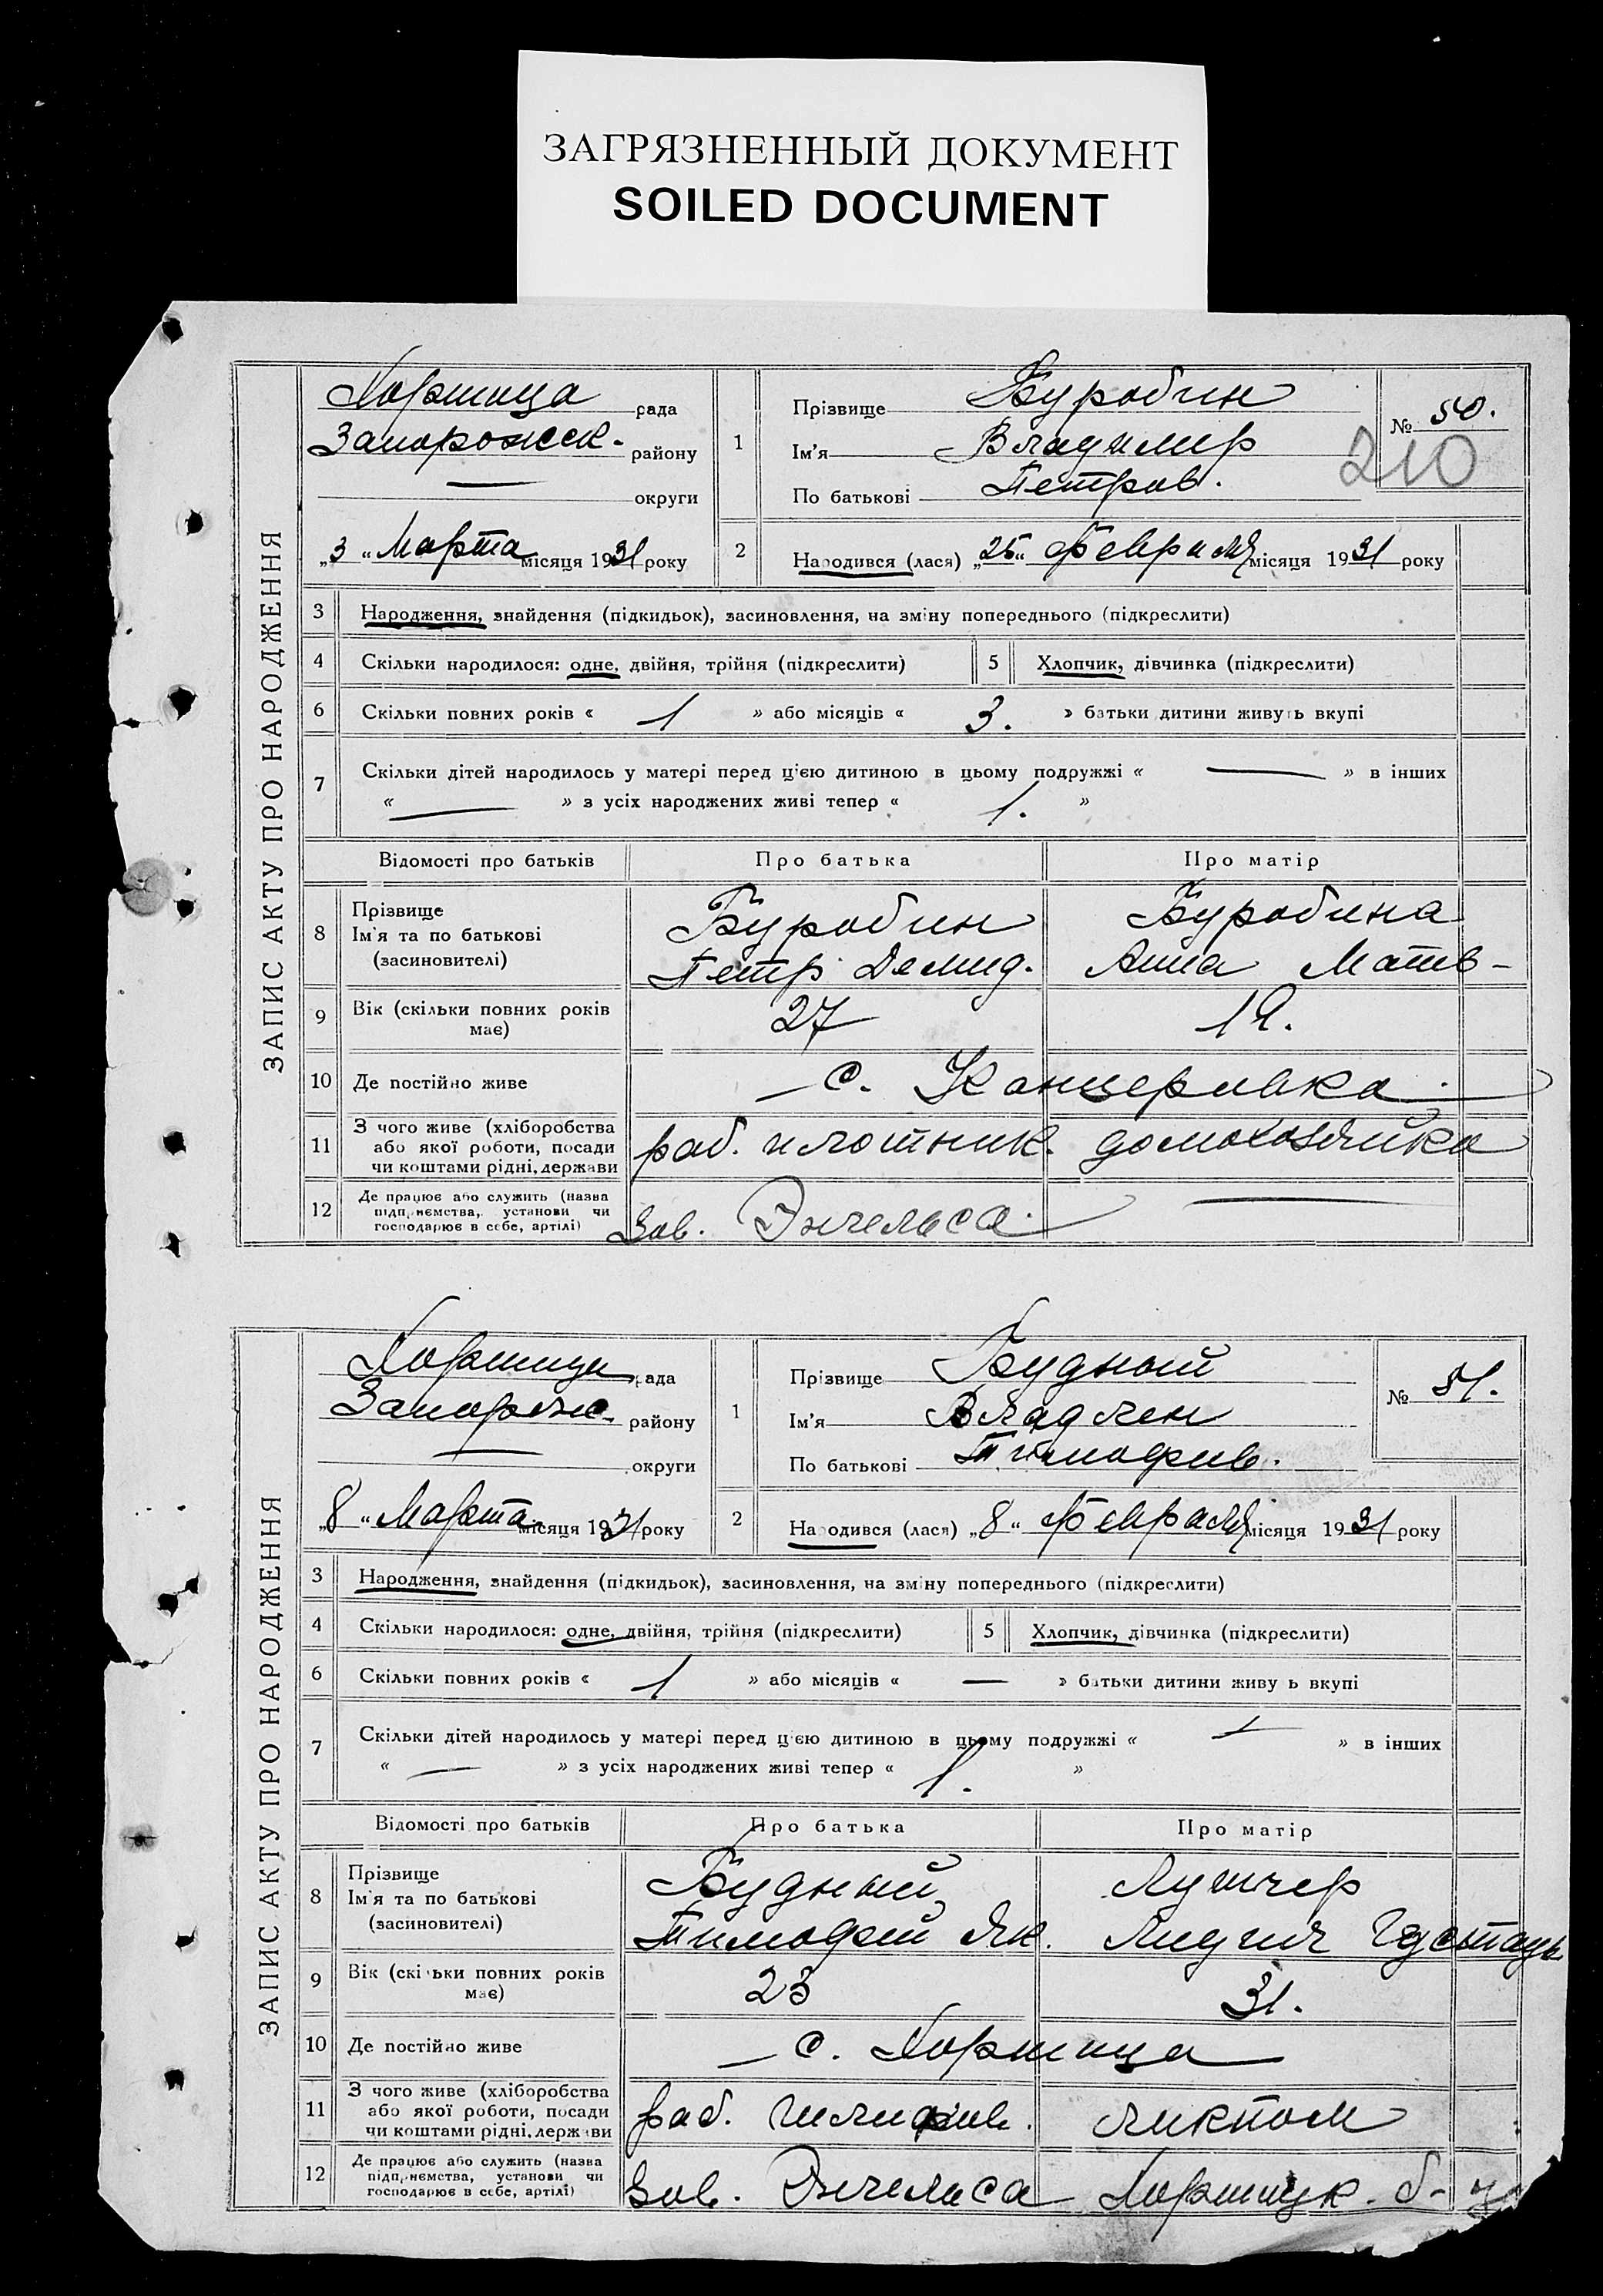 ЗАГРЯЗНЕННЫЙ ДОКУМЕНТ
SOILED DOCUMENT
ЗАПИС АКТУ ПРО НАРОДЖЕННЯ
Хортица рада
Запорожск. району
— округи
„3“ Марта місяця 1931 року
1
Прізвище Буробин
Ім'я Владимир
По батькові Петров.
№ 50.
210
2 Народився (лася) „25“ Февраля місяця 1931 року
3 Народження, знайдення (підкидьок), засиновлення, на зміну попереднього (підкреслити)
4 Скільки народилося: одне, двійня, трійня (підкреслити) 5 Хлопчик, дівчинка (підкреслити)
6 Скільки повних років « 1 » або місяців « 3. » батьки дитини живуть вкупі
7 Скільки дітей народилось у матері перед цією дитиною в цьому подружжі « — » в інших
« — » з усіх народжених живі тепер « 1. »
Відомості про батьків Про батька Про матір
8 Прізвище Ім'я та по батькові (засиновителі)
Буробин Буробина
Петр Демид. Анна Матв-
9 Вік (скільки повних років має) 27 19.
10 Де постійно живе — с. Канцеривка.
11 З чого живе (хліборобства або якої роботи, посади чи коштами рідні, держави раб. плотник. домохозяйка
12 Де працює або служить (назва підприємства, установи чи господарює в себе, артілі) Зав. Энгельса. —
ЗАПИС АКТУ ПРО НАРОДЖЕННЯ
Хортица рада
Запорож. району
— округи
„8“ Марта місяця 1931 року
1
Прізвище Будный
Ім'я Владлен
По батькові Тимофив.
№ 51.
2 Народився (лася) „8“ Февраля місяця 1931 року
3 Народження, знайдення (підкидьок), засиновлення, на зміну попереднього (підкреслити)
4 Скільки народилося: одне, двійня, трійня (підкреслити) 5 Хлопчик, дівчинка (підкреслити)
6 Скільки повних років « 1 » або місяців « — » батьки дитини живу ь вкупі
7 Скільки дітей народилось у матері перед цією дитиною в цьому подружжі « — » в інших
« — » з усіх народжених живі тепер « 1. »
Відомості про батьків Про батька Про матір
8 Прізвище Ім'я та по батькові (засиновителі)
Будный
Тимофей Як.
9 Вік (скільки повних років має) 23 31.
10 Де постійно живе — с. Хортица
11 З чого живе (хліборобства або якої роботи, посади чи коштами рідні, держави раб. ликпом
12 Де працює або служить (назва підприємства, установи чи господарює в себе, артілі) Зав. Энгельса Хортицк. б-ца